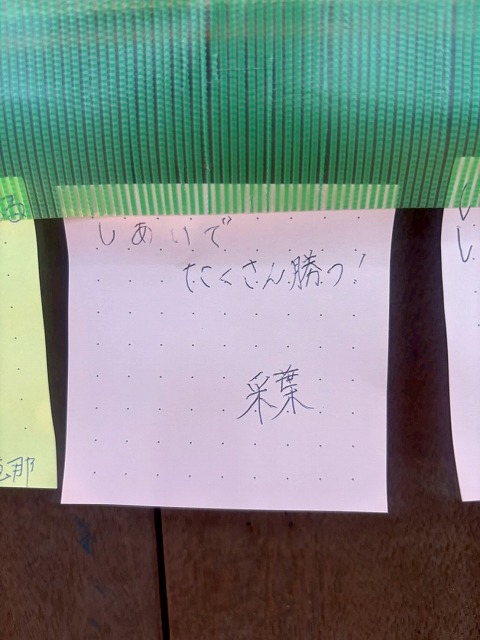 しあいで
たくさん勝つ!
采葉